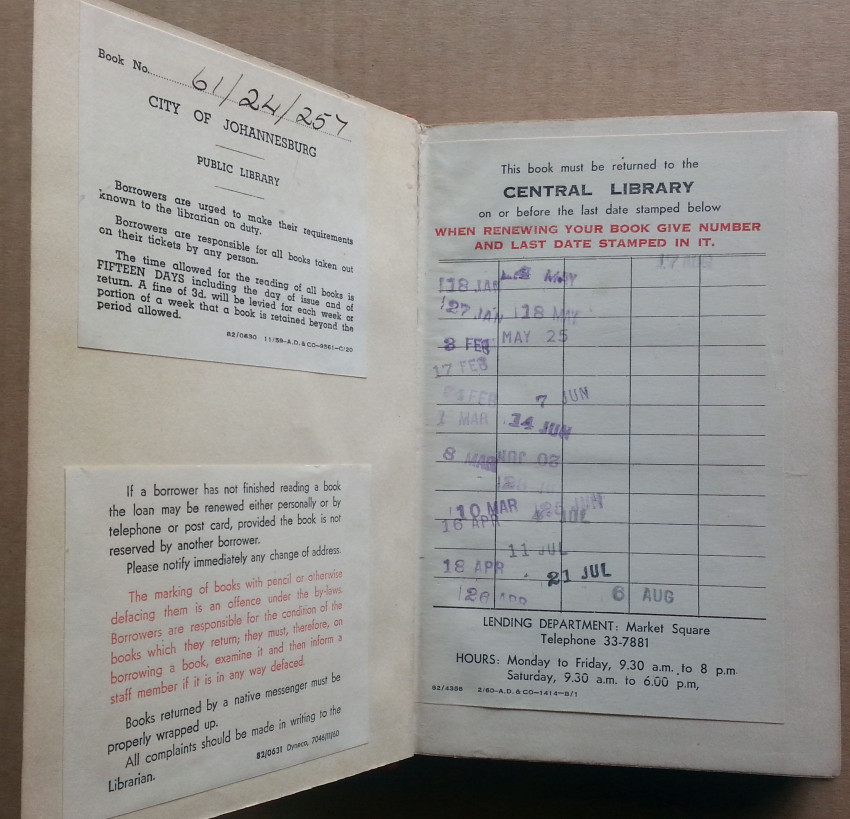 Book No. 61/24/257
CITY OF JOHANNESBURG
PUBLIC LIBRARY
Borrowers are urged to make their requirements
known to the librarian on duty.
Borrowers are responsible for all books taken out
on their tickets by any person.
The time allowed for the reading of all books is
FIFTEEN DAYS including the day of issue and of
return. A fine of 3d. will be levied for each week or
portion of a week that a book is retained beyond the
period allowed.
82/0630 11/59-A.D. & CO-9561-C/20
If a borrower has not finished reading a book
the loan may be renewed either personally or by
telephone or post card, provided the book is not
reserved by another borrower.
Please notify immediately any change of address.
The marking of books with pencil or otherwise
defacing them is an offence under the by-laws.
Borrowers are responsible for the condition of the
books which they return; they must, therefore, on
borrowing a book, examine it and then inform a
staff member if it is in any way defaced.
Books returned by a native messenger must be
properly wrapped up.
All complaints should be made in writing to the
Librarian.
82/0631 Dynaco, 7046/11/60
This book must be returned to the
CENTRAL LIBRARY
on or before the last date stamped below
WHEN RENEWING YOUR BOOK GIVE NUMBER
AND LAST DATE STAMPED IN IT.
18 JAN MAY
27 JAN 18 MAY
8 FEB MAY 25
17 FEB
FEB 7 JUN
1 MAR 14 JUN
8 MAR
10 MAR
18 APR JUL
11 JUL
18 APR 21 JUL
26 APR 6 AUG
LENDING DEPARTMENT: Market Square
Telephone 33-7881
HOURS: Monday to Friday, 9.30 a.m. to 8 p.m
Saturday, 9.30 a.m. to 6.00 p.m,
82/4386 2/60-A.D. & CO-1414-B/1